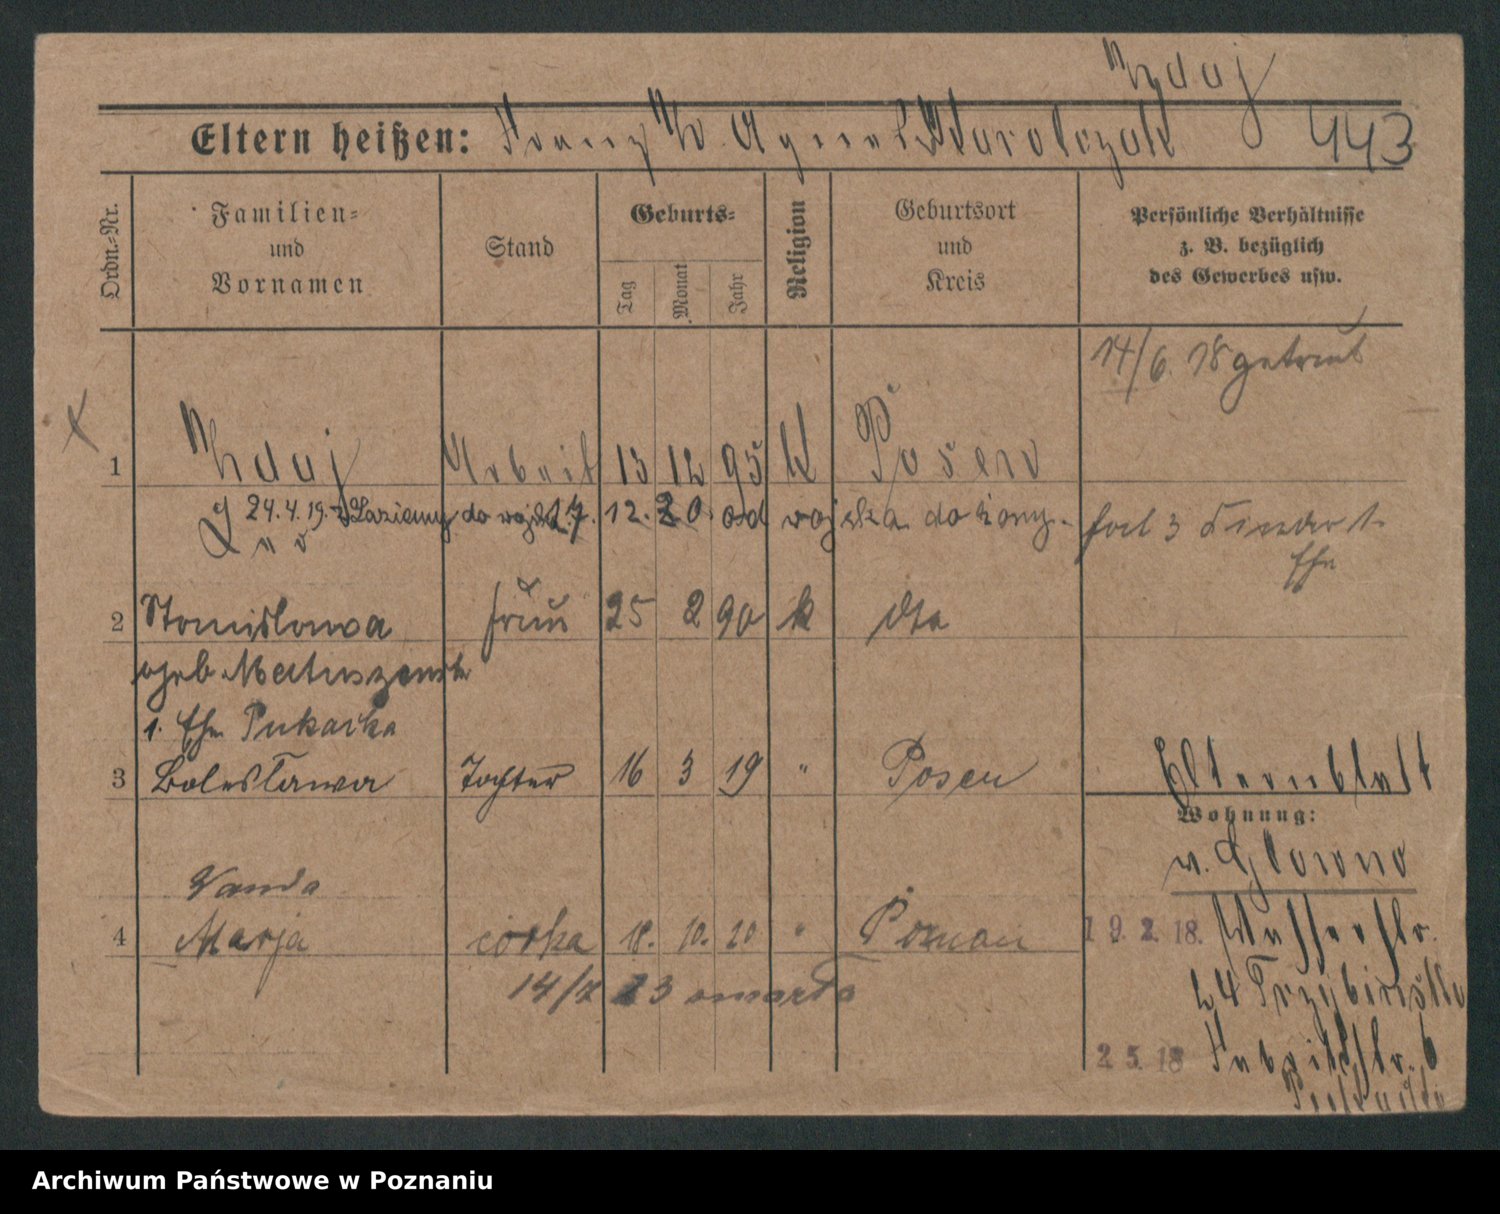 Zdaj
Eltern heißen: Franz Z. Agnes Karolczak 443
Ordn.-Nr.
Familien-
und
Vornamen
Stand
Geburts-
Tag
Monat
Jahr
Religion
Geburtsort
und
Kreis
Persönliche Verhältnisse
z. B. bezüglich
des Gewerbes usw.
14/6. 18 getraut
1 Zdaj Arbeit 13 12 95 K Posen
24.4.19. z Łaziemy do wojska 17. 12. 20 od wojska do żony.
hat 3 Kinder 1.
Ehe
2 Stanislawa frau 25 2 90 k dto
geb Matuszewska
1. Ehe Pukacka
3 Bolesława Tochter 16 3 19 " Posen
Elternblatt
Wohnung:
v. Glowno
Wanda
4 Marja córka 18. 10. 20 " Poznań
19. 2. 18. Wasserstr.
14/7 23 umarła
24
2. 5. 18 Fabrikstr. 6
Archiwum Państwowe w Poznaniu